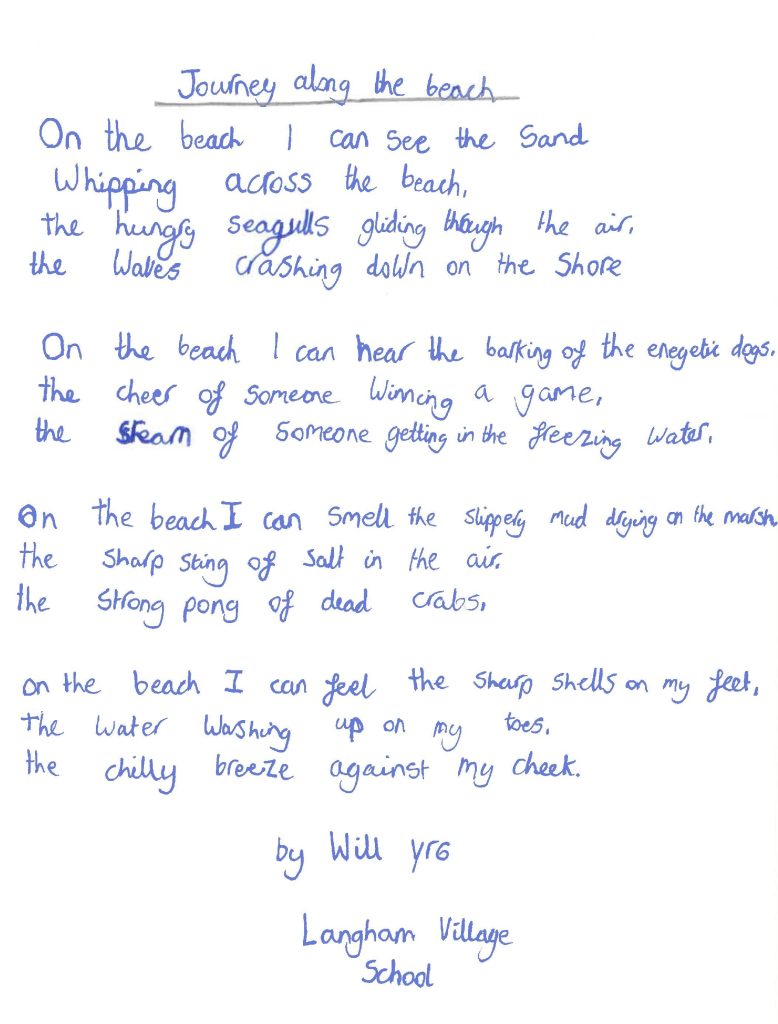 Journey along the beach
On the beach I can see the Sand
Whipping across the beach,
the hungry seagulls gliding through the air,
the Waves crashing down on the Shore
On the beach I can hear the barking of the enegetic dogs.
the cheer of someone Winning a game,
the of someone getting in the freezing water.
On the beach I can smell the slippery mud drying on the marsh.
the sharp sting of salt in the air.
the strong pong of dead crabs,
on the beach I can feel the sharp shells on my feet,
the water washing up on my toes,
the chilly breeze against my cheek.
by Will yr6
Langham Village
School